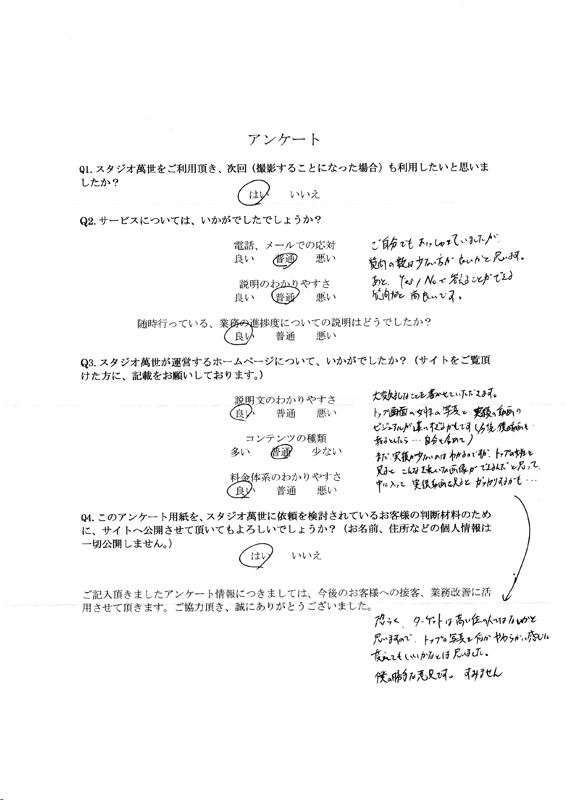 アンケート
Q1. スタジオ萬世をご利用頂き、次回（撮影することになった場合）も利用したいと思いま
したか？
はい いいえ
Q2. サービスについては、いかがでしたでしょうか？
電話、メールでの応対
良い 普通 悪い
ご自分でもおっしゃっていましたが、
質問の数は少ない方がよいかと思います。
説明のわかりやすさ
あと、Yes/Noで答えることができる
良い 普通 悪い
質問だと尚良いです。
随時行っている、業務の進捗度についての説明はどうでしたか？
良い 普通 悪い
Q3. スタジオ萬世が運営するホームページについて、いかがでしたか？（サイトをご覧頂
けた方に、記載をお願いしております。）
説明文のわかりやすさ
良い 普通 悪い
大変失礼なことを書かせていただきます。
トップ画面の女性の写真と実後の動画の
コンテンツの種類
多い 普通 少ない
まだ実後が少ないのはわかるのですが、トップの女性を
料金体系のわかりやすさ
良い 普通 悪い
中に入って実後動画を見るとがっかりするかも…
Q4. このアンケート用紙を、スタジオ萬世に依頼を検討されているお客様の判断材料のため
に、サイトへ公開させて頂いてもよろしいでしょうか？（お名前、住所などの個人情報は
一切公開しません。）
はい いいえ
ご記入頂きましたアンケート情報につきましては、今後のお客様への接客、業務改善に活
用させて頂きます。ご協力頂き、誠にありがとうございました。
恐らく、ターゲットは高い位の人ではないかと
思いますので、トップの写真を何かやわらかい感じに
変えてもいいかなとは思いました。
僕の勝手な意見です。すみません